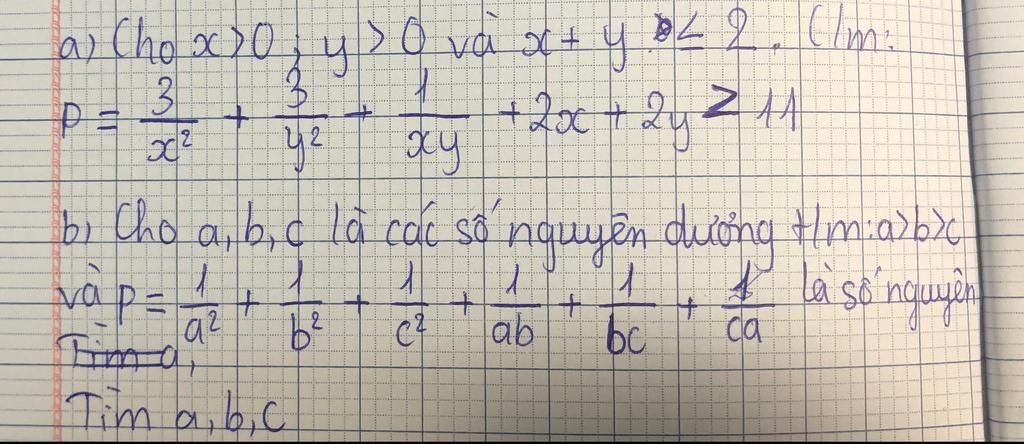 a) Cho x>0; y>0 và x+y ≤ 2. C/m:
P = 3/x² + 3/y² + 1/xy + 2x + 2y ≥ 11
b) Cho a, b, c là các số nguyên dương t/m: a>b>c
và P = 1/a² + 1/b² + 1/c² + 1/ab + 1/bc + 1/ca là số nguyên
Tìm a,
Tìm a, b, c